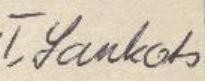 T. Lankots